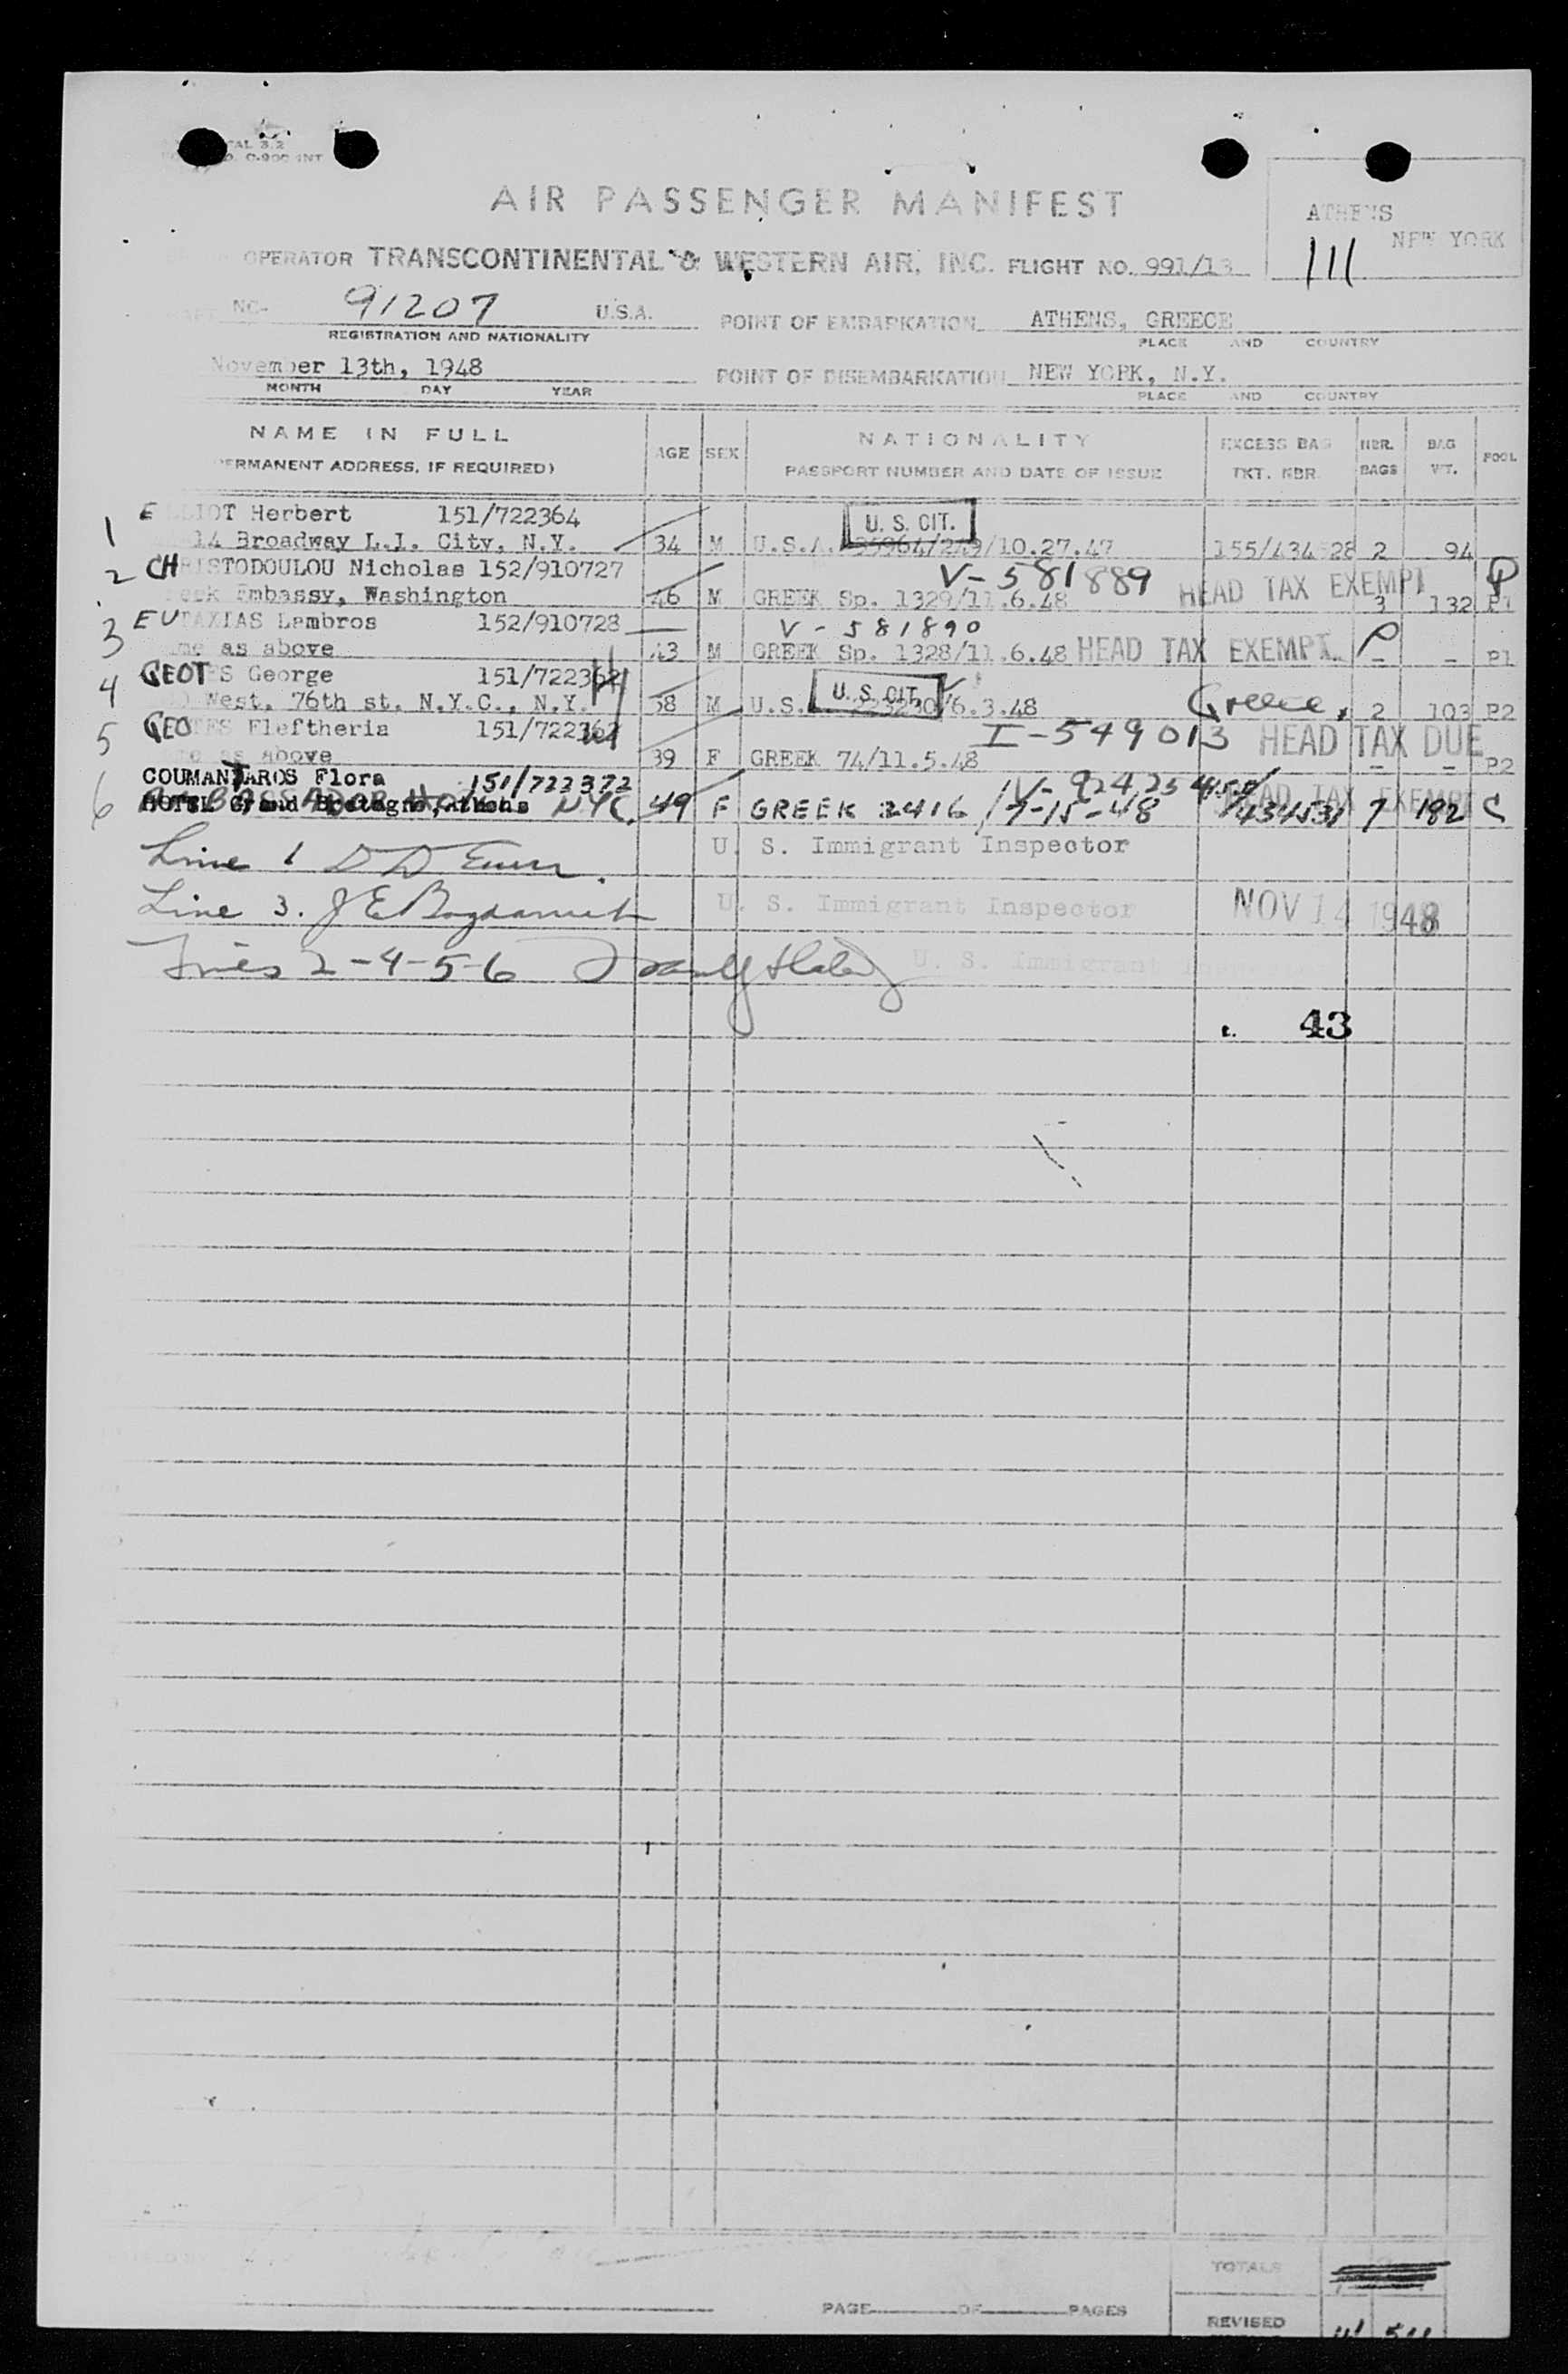 AIR PASSENGER MANIFEST
ATHENS
NEW YORK
111
OPERATOR TRANSCONTINENTAL & WESTERN AIR, INC. FLIGHT NO. 991/13
NC- 91207 U.S.A. POINT OF EMBARKATION ATHENS, GREECE
REGISTRATION AND NATIONALITY PLACE AND COUNTRY
November 13th, 1948 POINT OF DISEMBARKATION NEW YORK, N.Y.
MONTH DAY YEAR PLACE AND COUNTRY
NAME IN FULL AGE SEX NATIONALITY EXCESS BAG NBR. BAG POOL
PERMANENT ADDRESS, IF REQUIRED) PASSPORT NUMBER AND DATE OF ISSUE TKT. NBR. BAGS WT.
1 ELLIOT Herbert 151/722364 U. S. CIT.
14 Broadway L.I. City, N.Y. 34 M U.S.A. /10.27.47 2 94
2 CHRISTODOULOU Nicholas 152/910727 V-581889 HEAD TAX EXEMPT P
Embassy, Washington 46 M GREEK Sp. 1329/11.6.48 3 132 P1
3 EUTAXIAS Lambros 152/910728 V-581890
as above 43 M GREEK Sp. 1328/11.6.48 HEAD TAX EXEMPT. P - - P1
4 GEOTES George U. S. CIT.
West, 76th st. N.Y.C., N.Y. 38 M U.S. /6.3.48 Greece, 2 103 P2
5 GEOTES Eleftheria I-549013 HEAD TAX DUE
as above 39 F GREEK 74/11.5.48 - - P2
6 COUMANTAROS Flora 151/722372 HEAD TAX EXEMPT
HOTEL Grand Bretagne, Athens NYC. 49 F GREEK 2416/7-15-48 7 182 C
U. S. Immigrant Inspector
Line 1
Line 3. U. S. Immigrant Inspector NOV 14 1948
Lines 2-4-5-6 U. S. Immigrant
43
TOTALS
PAGE OF PAGES
REVISED